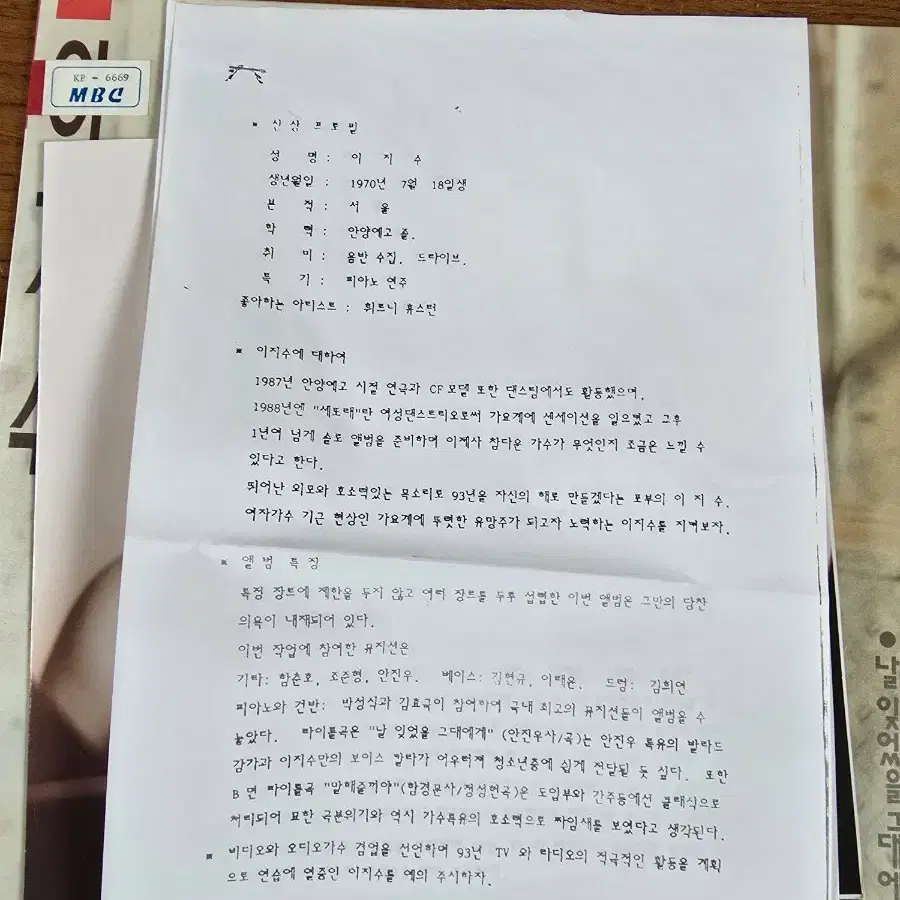 KP - 6669
MBC
이
지
수
※ 신상 프로필
성 명 : 이 지 수
생년월일 : 1970년 7월 18일생
본 적 : 서 울
학 력 : 안양예고 졸.
취 미 : 음반 수집. 드라이브.
특 기 : 피아노 연주
좋아하는 아티스트 : 휘트니 휴스턴
※ 이지수에 대하여
1987년 안양예고 시절 연극과 CF모델 또한 댄스팀에서도 활동했으며,
1988년엔 "세또래"란 여성댄스트리오로써 가요계에 센세이션을 일으켰고 그후
1년여 넘게 솔로 앨범을 준비하며 이제사 참다운 가수가 무엇인지 조금은 느낄 수
있다고 한다.
뛰어난 외모와 호소력있는 목소리로 93년을 자신의 해로 만들겠다는 포부의 이 지 수.
여자가수 기근 현상인 가요계에 뚜렷한 유망주가 되고자 노력하는 이지수를 지켜보자.
※ 앨 범 특 징
특정 장르에 제한을 두지 않고 여러 장르를 두루 섭렵한 이번 앨범은 그만의 당찬
의욕이 내재되어 있다.
이번 작업에 참여한 뮤지션은
기타: 함춘호, 조준형, 안진우. 베이스: 김현규, 이태윤. 드럼: 김희연
피아노와 건반: 박성식과 김효국이 참여하여 국내 최고의 뮤지션들이 앨범을 수
놓았다. 타이틀곡은 "날 잊었을 그대에게" (안진우사/곡)는 안진우 특유의 발라드
감각과 이지수만의 보이스 칼라가 어우러져 청소년층에 쉽게 전달될 듯 싶다. 또한
B 면 타이틀곡 "말해줄꺼야"(함경문사/정성헌곡)은 도입부와 간주등에선 클래식으로
처리되어 묘한 곡분위기와 역시 가수특유의 호소력으로 짜임새를 보였다고 생각된다.
※ 비디오와 오디오가수 겸업을 선언하며 93년 TV 와 라디오의 적극적인 활동을 계획
으로 연습에 열중인 이지수를 예의 주시하자.
● 날 잊었을 그대에